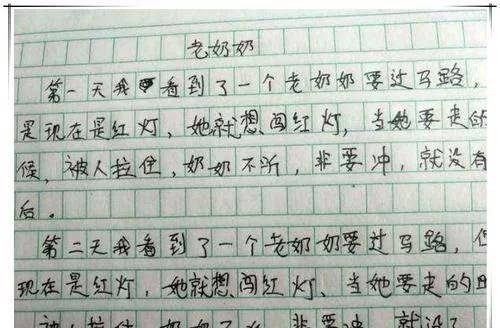 老奶奶
第一天我看到了一个老奶奶要过马路,
是现在是红灯,她就想闯红灯,当她要走的
候,被人拉住,奶奶不听,非要冲,就没有
后。
第二天我看到了一个老奶奶要过马路,但
现在是红灯,她就想闯红灯、当她要走的
被人拉住,奶奶不 非要冲 就没